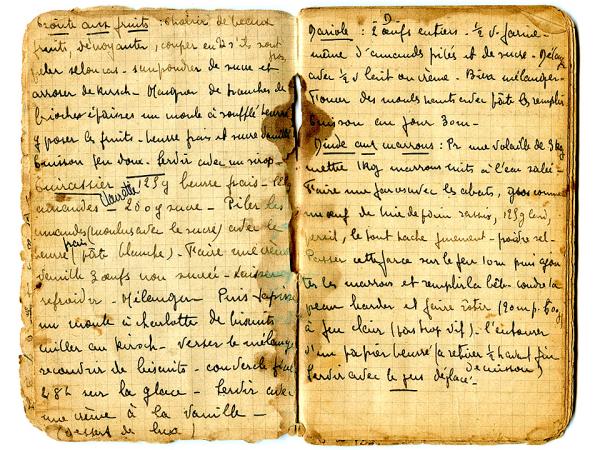 Croûte aux fruits : choisir de beaux
fruits dénoyauter, couper en 2 s'ils sont
gros
peler selon cas - saupoudrer de sucre et
arroser de kirsch - Masquer de tranches de
brioches épaisses un moule à soufflé beurré
y poser les fruits - beurre frais et sucre vanillé
cuisson feu doux - Servir avec un sirop -
125g beurre frais -
amandes 200g sucre - Piler les
amandes (moulues avec le sucre) avec le
frais
beurre (pâte blanche) - Faire une crème
vanille 3 œufs non sucrée - Laisser
refroidir - Mélanger - Puis tapisser
un moule à charlotte de biscuits
cuiller au kirsch - verser le mélange
recouvrir de biscuits - couvercle
48h sur la glace - Servir avec
une crème à la vanille -
(dessert de luxe)
Dariole : 2 œufs entiers - ½ d. farine -
même d'amandes pilées et de sucre - Délayez
avec ½ v lait ou crème - Bien mélanger -
Foncer des moules beurrés avec pâte les remplir
cuisson au four 30m -
Dinde aux marrons : Pr une volaille de 3kg
mettre 1kg marrons cuits à l'eau salée -
Faire une farce avec les abats, gros comme
un œuf de mie de pain rassis, 125g lard,
persil, le tout haché finement - poivre sel -
Passer cette farce sur le feu 10m puis ajou
ter les marrons et remplir la bête - coudre la
peau barder et faire rôtir (20m p. 500g
à feu clair (pas trop vif). L'entourer
d'un papier beurré (à retirer ½h avant fin
de cuisson)
Servir avec le jus dégraissé -